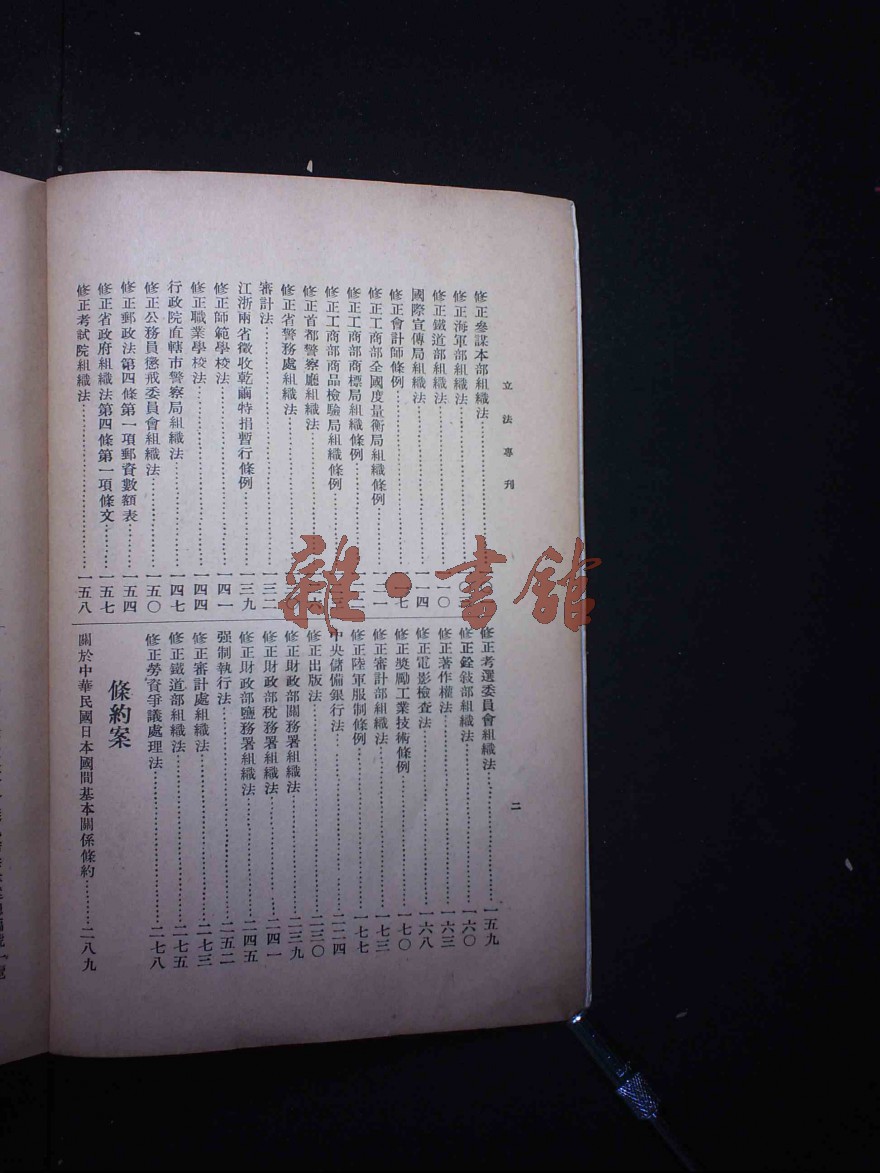 立法專刊
二
修正參謀本部組織法
修正海軍部組織法
修正鐵道部組織法……一一〇
國際宣傳局組織法……一一四
修正會計師條例……一一七
修正工商部全國度量衡局組織條例……一二一
修正工商部商標局組織條例
修正工商部商品檢驗局組織條例
修正首都警察廳組織法
修正省警務處組織法
審計法……一三二
江浙兩省徵收乾繭特捐暫行條例……一三九
修正師範學校法……一四一
修正職業學校法……一四四
行政院直轄市警察局組織法……一四七
修正公務員懲戒委員會組織法……一五〇
修正郵政法第四條第一項郵資數額表……一五四
修正省政府組織法第四條第一項條文……一五七
修正考試院組織法……一五八
修正考選委員會組織法……一五九
修正銓敍部組織法……一六〇
修正著作權法……一六三
修正電影檢查法……一六八
修正獎勵工業技術條例……一七〇
修正審計部組織法……一七三
修正陸軍服制條例……一七七
中央儲備銀行法……二二四
修正出版法……二三〇
修正財政部關務署組織法……二三九
修正財政部稅務署組織法……二四一
修正財政部鹽務署組織法……二四五
强制執行法……二五二
修正審計處組織法……二七三
修正鐵道部組織法……二七五
修正勞資爭議處理法……二七八
條約案
關於中華民國日本國間基本關係條約……二八九
雜·書館